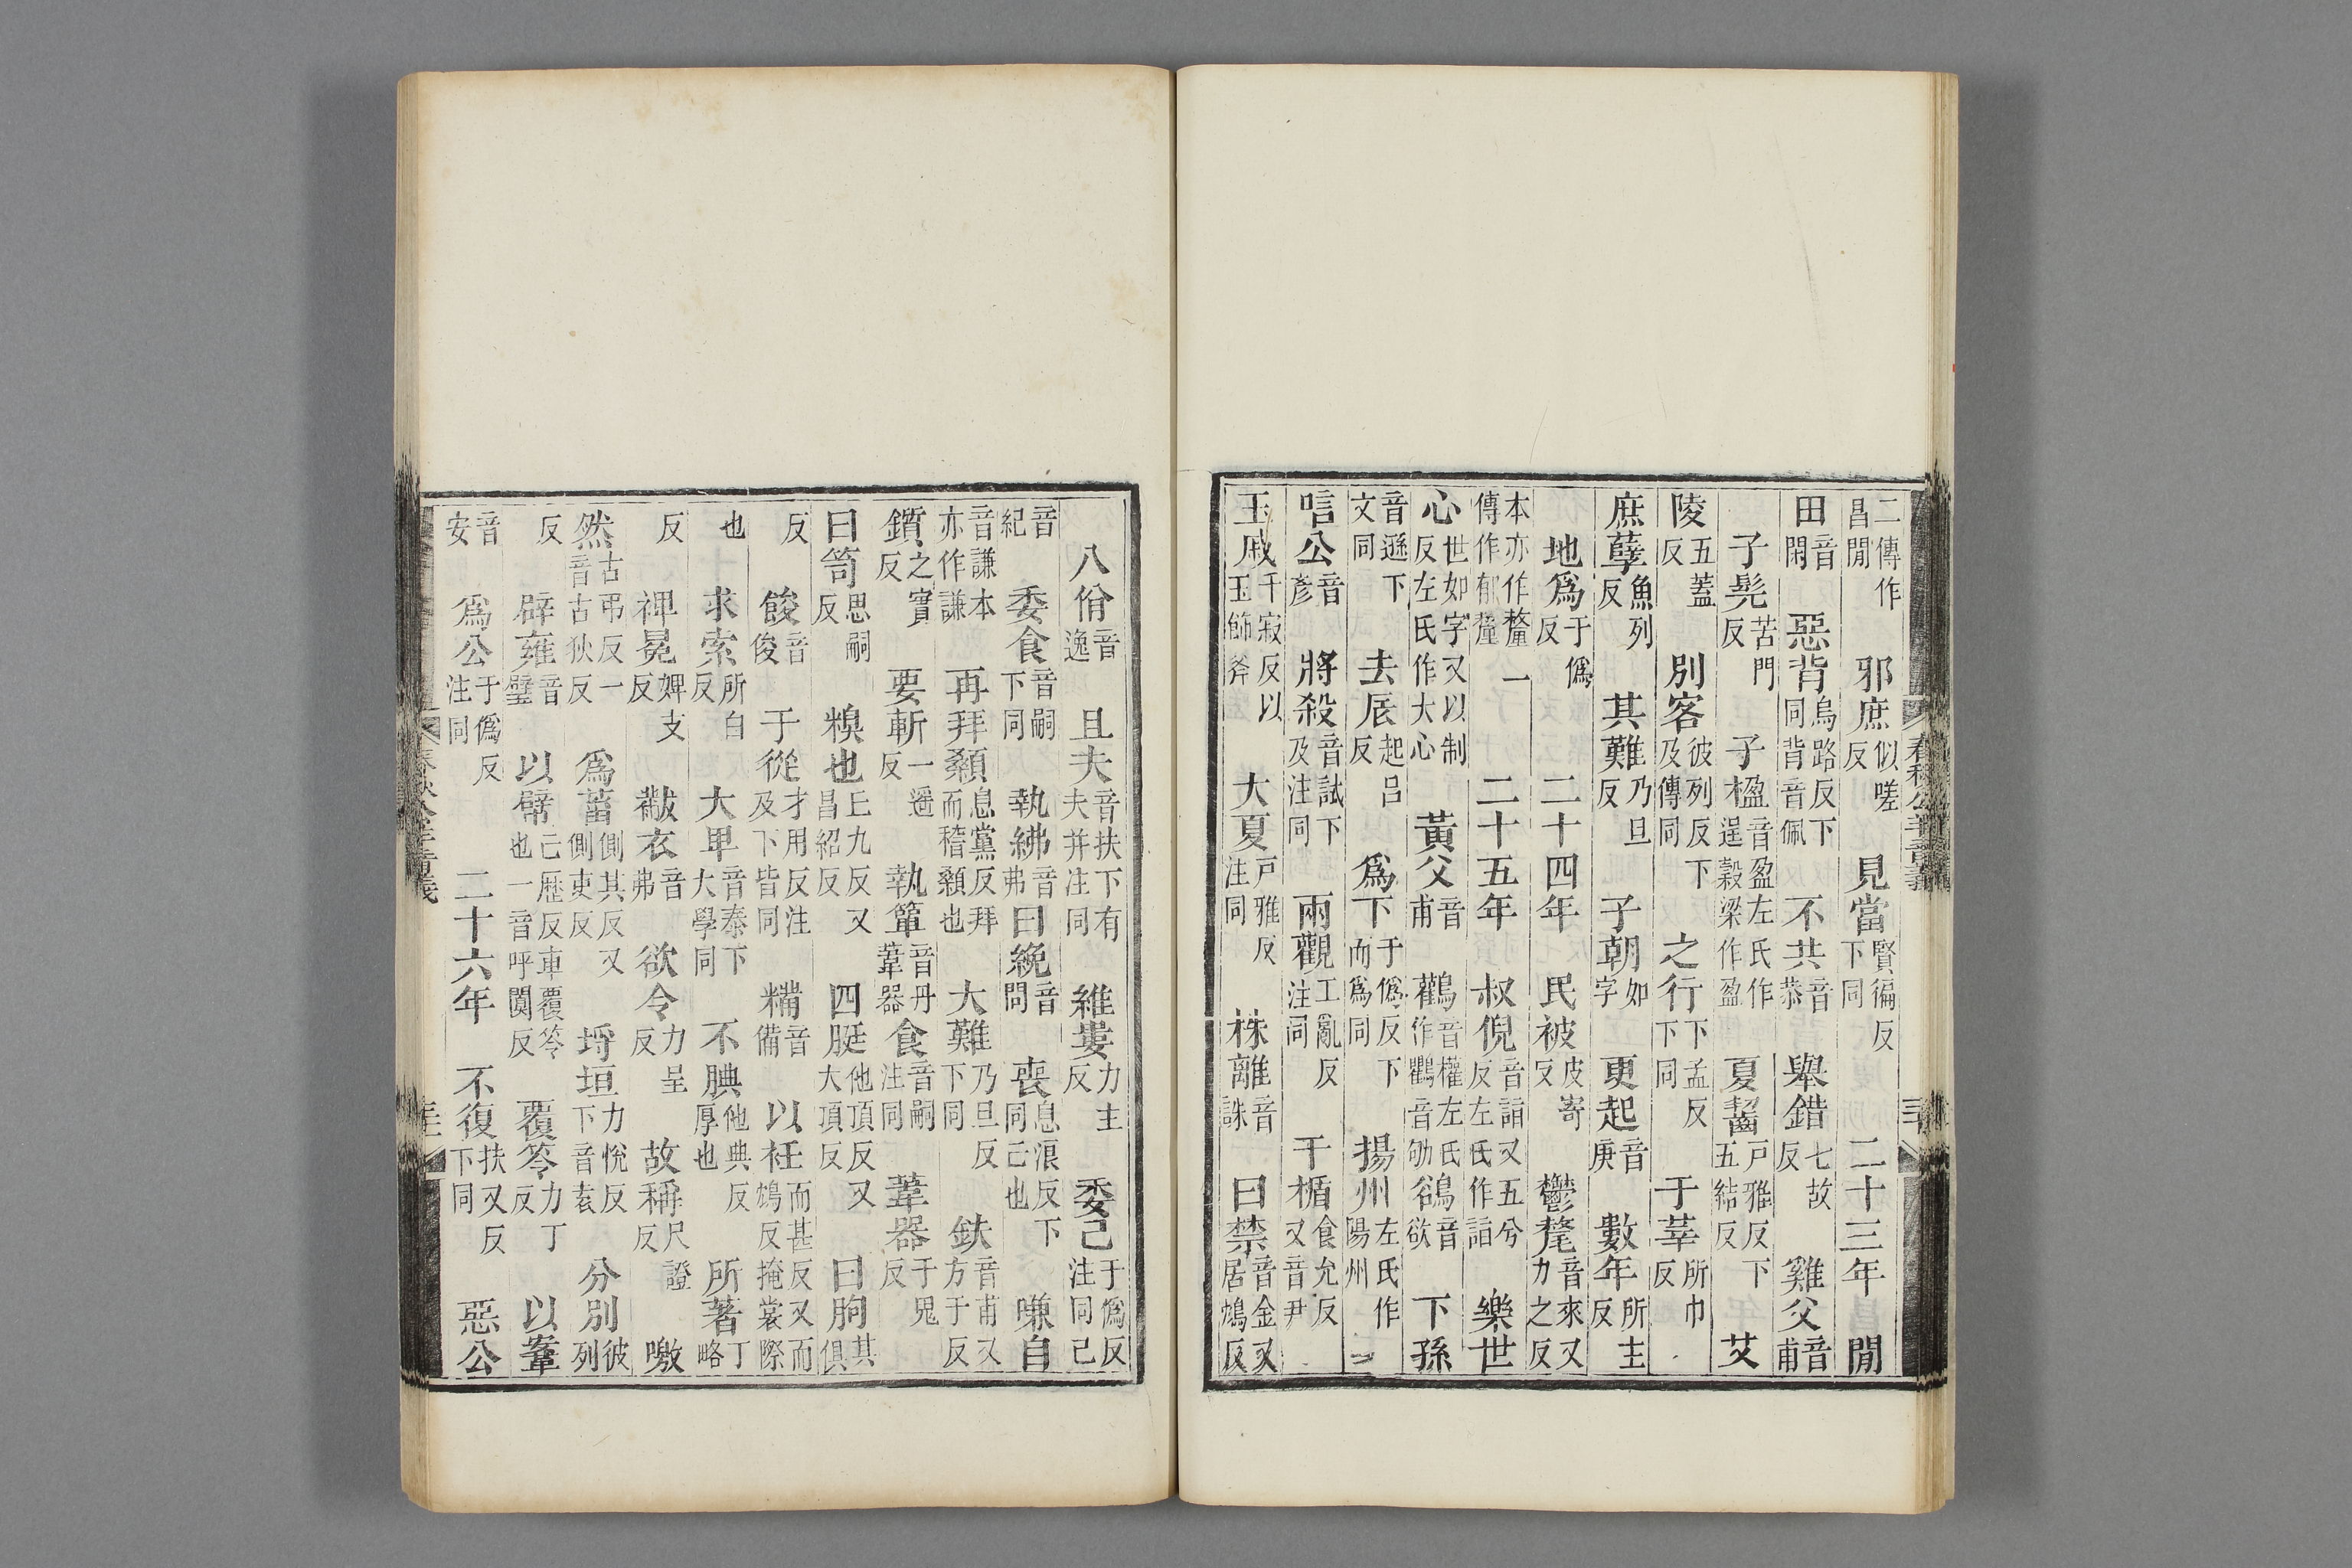 二傳作昌閒 邪庶似嗟反 見當賢徧反下同 二十三年 閒
田音閑 惡背烏路反下同背音佩 不共音恭 舉錯七故反 雞父音甫
子髡苦門反 子楹音盈左氏作逞穀梁作盈 夏齧戶雅反下五結反 艾
陵五蓋反 別客彼列反下及傳同 之行下孟反下同 于莘所巾反
庶孽魚列反 其難乃旦反 子朝如字 更起音庚 數年所主反
地爲于僞反 二十四年 民被皮寄反 鬱氂音來又力之反
本亦作釐一傳作郁釐 二十五年 叔倪音詣又五兮反左氏作詣 樂世
心世如字又以制反左氏作大心 黃父音甫 鸛音權左氏作鸜音劬鵒音欲 下孫
音遜下文同 去辰起呂反 爲下于僞反下而爲同 揚州左氏作陽州
唁公音彥 將殺音試下及注同 兩觀工亂反注同 干楯食允反又音尹
玉戚千寂反以玉飾斧 大夏戶雅反注同 株離音誅 曰禁音金又居鴆反
春秋公羊音義
八佾音逸 且夫音扶下有夫并注同 維婁力主反 委己于僞反注同己
音紀 委食音嗣下同 執紼音弗 曰絻音問 喪息浪反下同己也 嗛自
音謙本亦作謙 再拜顙息黨反拜而稽顙也 大難乃旦反下同 鈇音甫又方于反
鑕之實反 要斬一遥反 執簞音丹葦器 食音嗣注同 葦器于鬼反
曰笥思嗣反 糗也丘九反又昌紹反 四脡他頂反又大頂反 曰朐其俱
反 餕音俊 于從才用反注及下皆同 糒音備 以衽而甚反又而鴆反掩裳際
也 求索所白反 大卑音泰下大學同 不腆他典反厚也 所著丁略
反 裨冕婢支反 黻衣音弗 欲令力呈反 故稱尺證反 噭
然古弔反一音古狄反 爲菑側其反又側吏反 埒垣力悅反下音袁 分別彼列
反 辟雍音璧 以幦亡歷反車覆笭也一音呼闃反 覆笭力丁反 以鞌
音安 爲公于僞反注同 二十六年 不復扶又反下同 惡公
春秋公羊音義